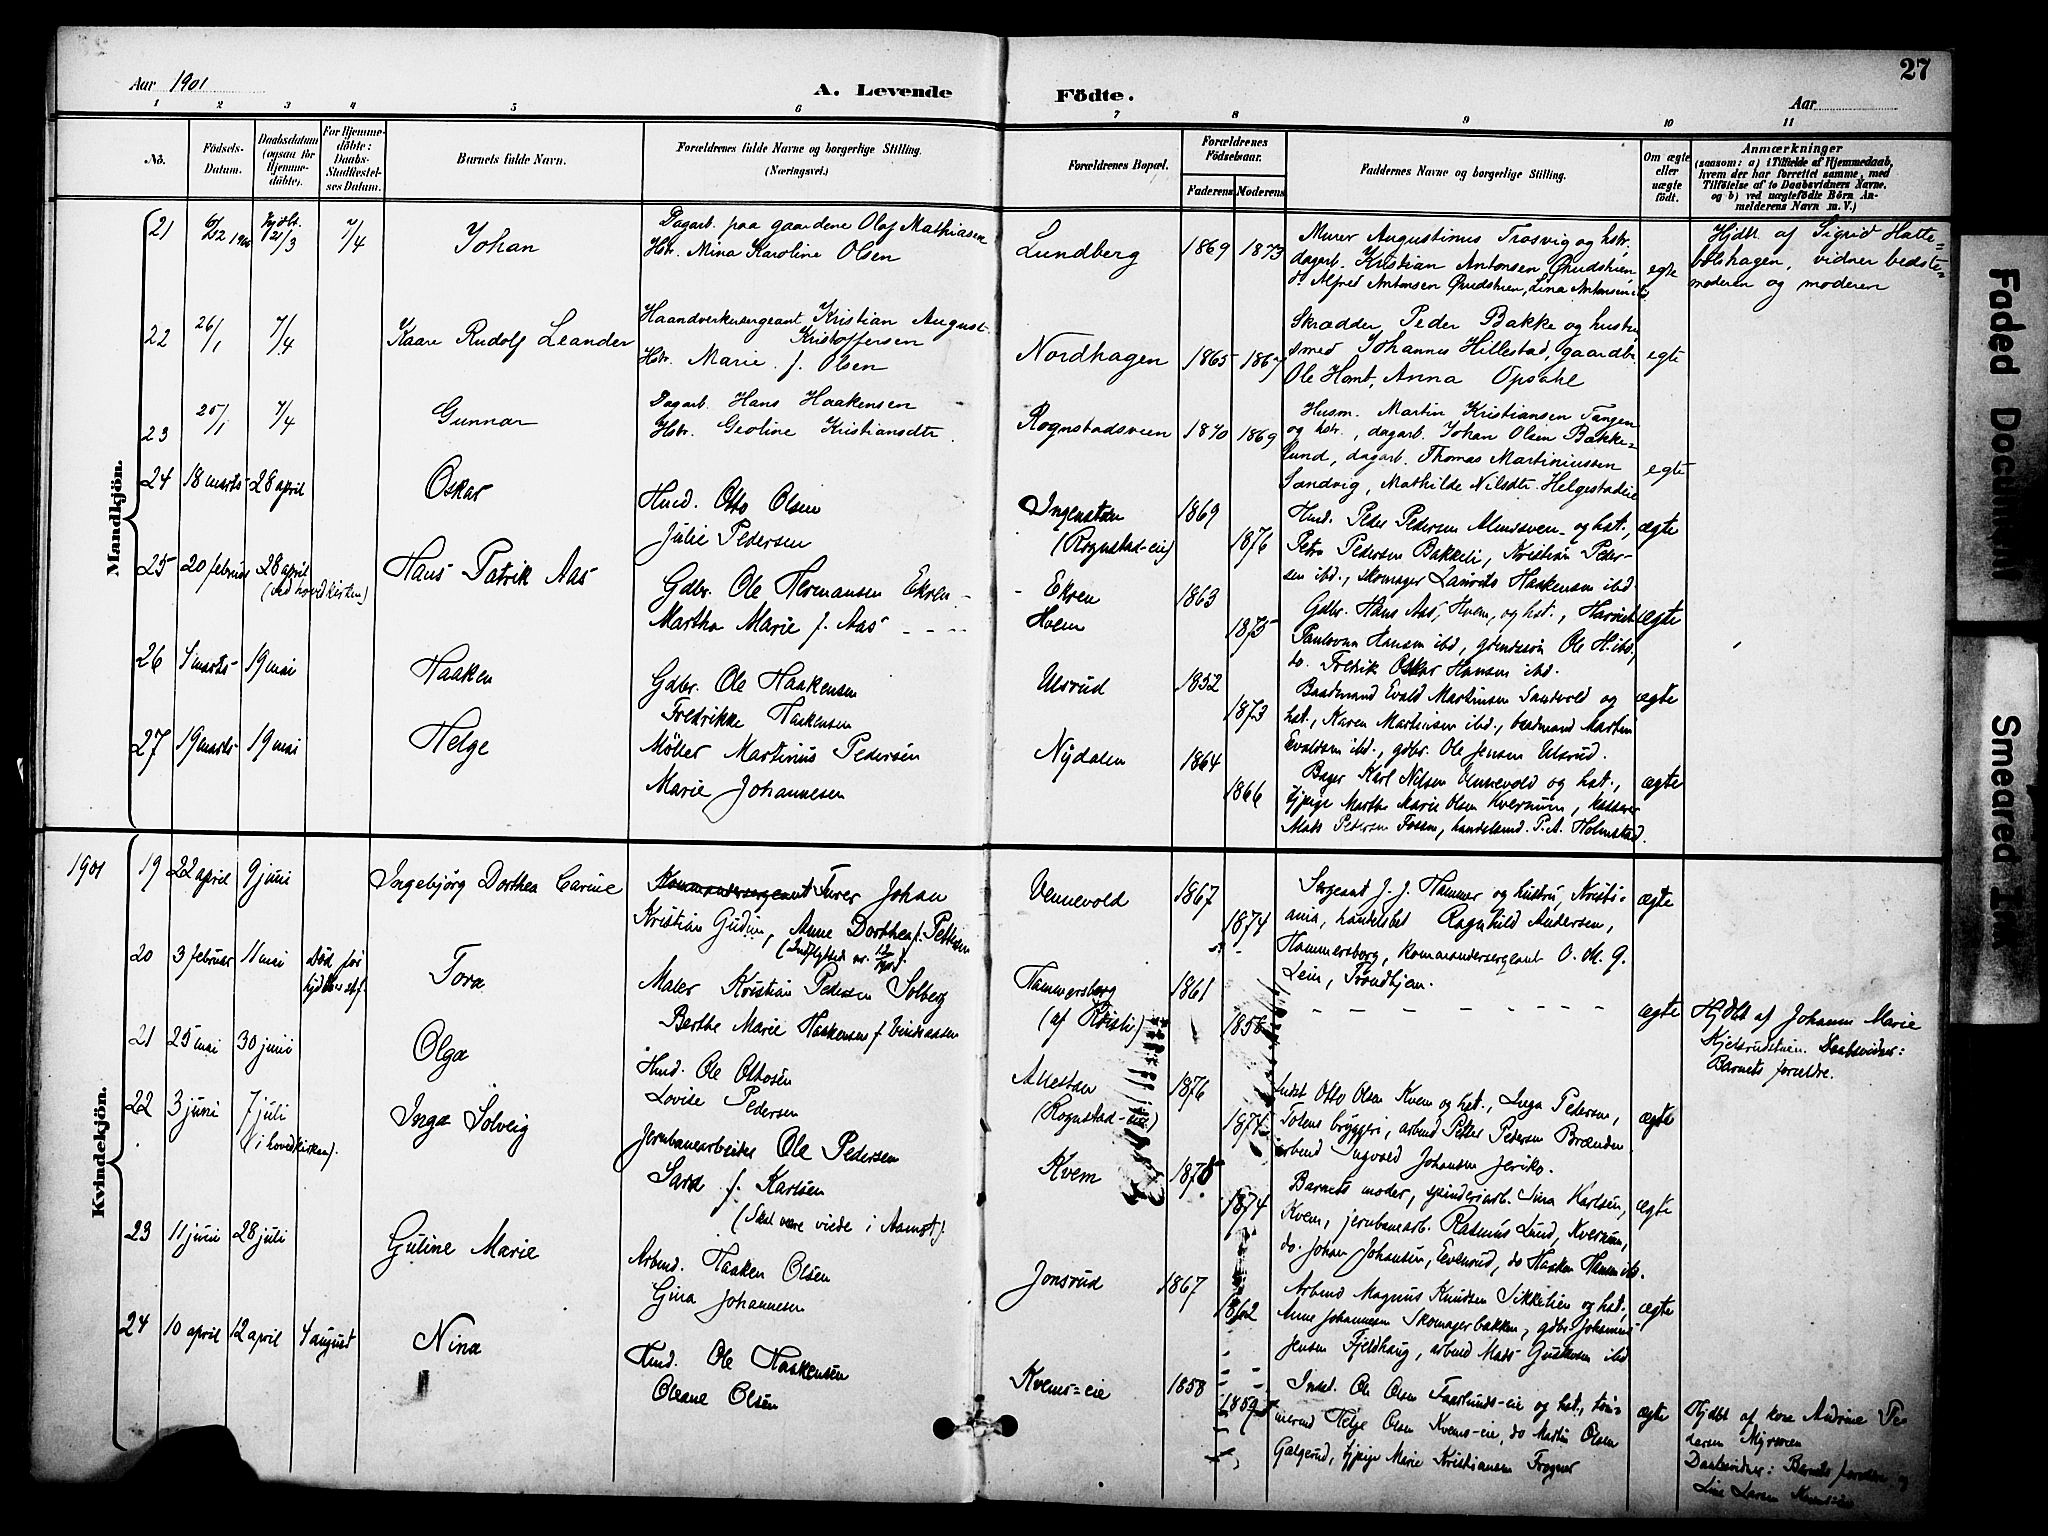 27
Aar 1901
A. Levende Födte.
Aar
1 2 3 4 5 6 7 8 9 10 11
No.
Födsels-
Datum.
Daabsdatum
(ogsaa for
Hjemme-
döbte).
For Hjemme-
döbte:
Daabs-
Stadfæstel-
ses Datum.
Barnets fulde Navn.
Forældrenes fulde Navne og borgerlige Stilling.
(Næringsvei.)
Forældrenes Bopæl.
Forældrenes
Födselsaar.
Faderens Moderens
Faddernes Navne og borgerlige Stilling.
Om ægte
eller
uægte
födt.
Anmærkninger
(saasom: a) i Tilfælde af Hjemmedaab,
hvem der har forrettet samme, med
Tilföielse af to Daabsvidners Navne.
og b) ved uægtefödte Börn An-
melderens Navn m. V.)
Mandkjön.
21 6/12 1900 hjdbt. 21/3 7/4 Johan
Dagarb. paa gaardene Olaf Mathiasen
Hstr. Mina Karoline Olsen
Lundberg 1869 1873
Murer Augustinus Trosvig og hstr.
dagarb. Kristian Antonsen
do Alfred Antonsen
egte
Hjdbt. af Sigrid Hatte-
bölshagen, vidner bedste-
moderen og moderen
22 26/1 7/4 Kaare Rudolf Leander
Haandverksersergeant Kristian August
Kristoffersen
Hstr. Marie f. Olsen
Nordhagen 1865 1867
Skrædder Peder Bakke og hustru
smed Johannes Hillestad, gaardbr.
Ole Homb, Anna Opsahl
egte
23 25/1 7/4 Gunnar
Dagarb. Hans Haakensen
Hstr. Geoline Kristiansdtr.
Rognstadsveen 1870 1869
Husm. Martin Kristiansen Tangen
og hstr., dagarb. Johan Olsen Bakke-
lund, dagarb. Thomas Martiniussen
Sandvig, Mathilde Nilsdtr. Helgestadeie
egte
24 18 marts 28 april Oskar
Hmd. Otto Olsen
Julie Pedersen
Ingenstun
(Rognstad-eie)
1869 1876
Hmd. Peder Pedersen og hst.,
Petra Pedersen Bakkeli, Kristian Peder-
sen ibd., skomager Laurits Haakensen ibd.
ægte
25 20 februar 28 april
(ved hovedkirken)
Hans Patrik Aas
Gdbr. Ole Hermansen Ekren
Martha Marie f. Aas
Ekren
Hvem
1863 1875
Gdbr. Hans Aas, Hvem, og hst., Harriet
Paulovna Hansen ibd., grdmssön Ole H. ibd.
do. Fredrik Oskar Hansen ibd.
ægte
26 1 marts 19 mai Haaken
Gdbr. Ole Haakensen
Fredrikke Haakensen
Ulsrud 1852 1873
Baadmand Evald Martinsen Sandvold og
hst., Karen Martinsen ibd., baadmand Martin
Evaldsen ibd., gdbr. Ole Jensen Ulsrud.
ægte
27 19 marts 19 mai Helge
Möller Martinus Pedersen
Marie Johannesen
Nydalen 1864 1866
Bager Karl Nilsen Unnevold og hst.,
tjpige Marthe Marie Olsen Kvernum, kasserer
Mads Pedersen Fossen, handelsmd. P. A. Holmstad.
ægte
1901
Kvindekjön.
19 22 april 9 juni Ingebjörg Dorthea Carine
Kommandersergeant Furer Johan
Kristian Gudim, Anne Dorthea f. Pettersen
Vennevold 1867 1874
Sergeant J. J. Hammer og hustru, Kristi-
ania, handelsbet Ragnhild Andersen,
Hammersborg, kommandersergeant O. M. G.
Lein, Trondhjem.
ægte
20 3 februar 11 mai Död för
Tora
Maler Kristian Pedersen Solberg
Berthe Marie Haakensen f.
Hammersborg
(af Kristi.)
1861 1858
ægte
Hjdbt af Johanne Marie
Kjelsrudstuen. Daabsvidner:
Barnets forældre.
21 25 mai 30 juni Olga
Hmd. Ole Ottosen
Lovise Pedersen
(Rognstad-eie)
1876 1874
Indst Otto Olsen Kvem og hst., Inga Pedersen,
Totens bryggeri, arbmd Petter Pedersen Brænden
arbmd Ingvald Johansen Jeriko.
ægte
22 3 juni 7 juli
(i hovedkirken).
Inga Solveig
Jernbanearbeider Ole Pedersen
Sara f. Karlsen
(Skal være viede i Aamot).
Kvem 1875 1874
Barnets moder, spinderiarb. Lina Karlsen,
Kvem, jernbanearb. Rasmus Lund, Kvernum,
do. Johan Johansen, Evensrud, do Haaken Hansen ibd.
ægte
23 11 juni 28 juli Guline Marie
Arbmd. Haaken Olsen
Gina Johannesen
Jonsrud 1867 1862
Arbmd Magnus Knudsen Sikkelien og hst.,
Anne Johannesen Skomagerbakken, gdbr. Johannes
Jensen Fjeldhaug, arbmd Mads Gustavsen ibd
ægte
24 10 april 12 april 4 august Nina
Hmd. Ole Haakensen
Oleane Olsen
Kvems-eie 1858 1859
Indst. Ole Olsen Faarlunds-eie og hst., töm-
mermd Helge Olsen Kvems-eie, do Martin Olsen
Galgerud, tjpige Marie Kristiansen Frogner
ægte
Hjdbt af kone Andrine Pe-
dersen Myrveen
Daabsvidner: Barnets forældre og
Line Larsen
Faded Document
Smeared Ink